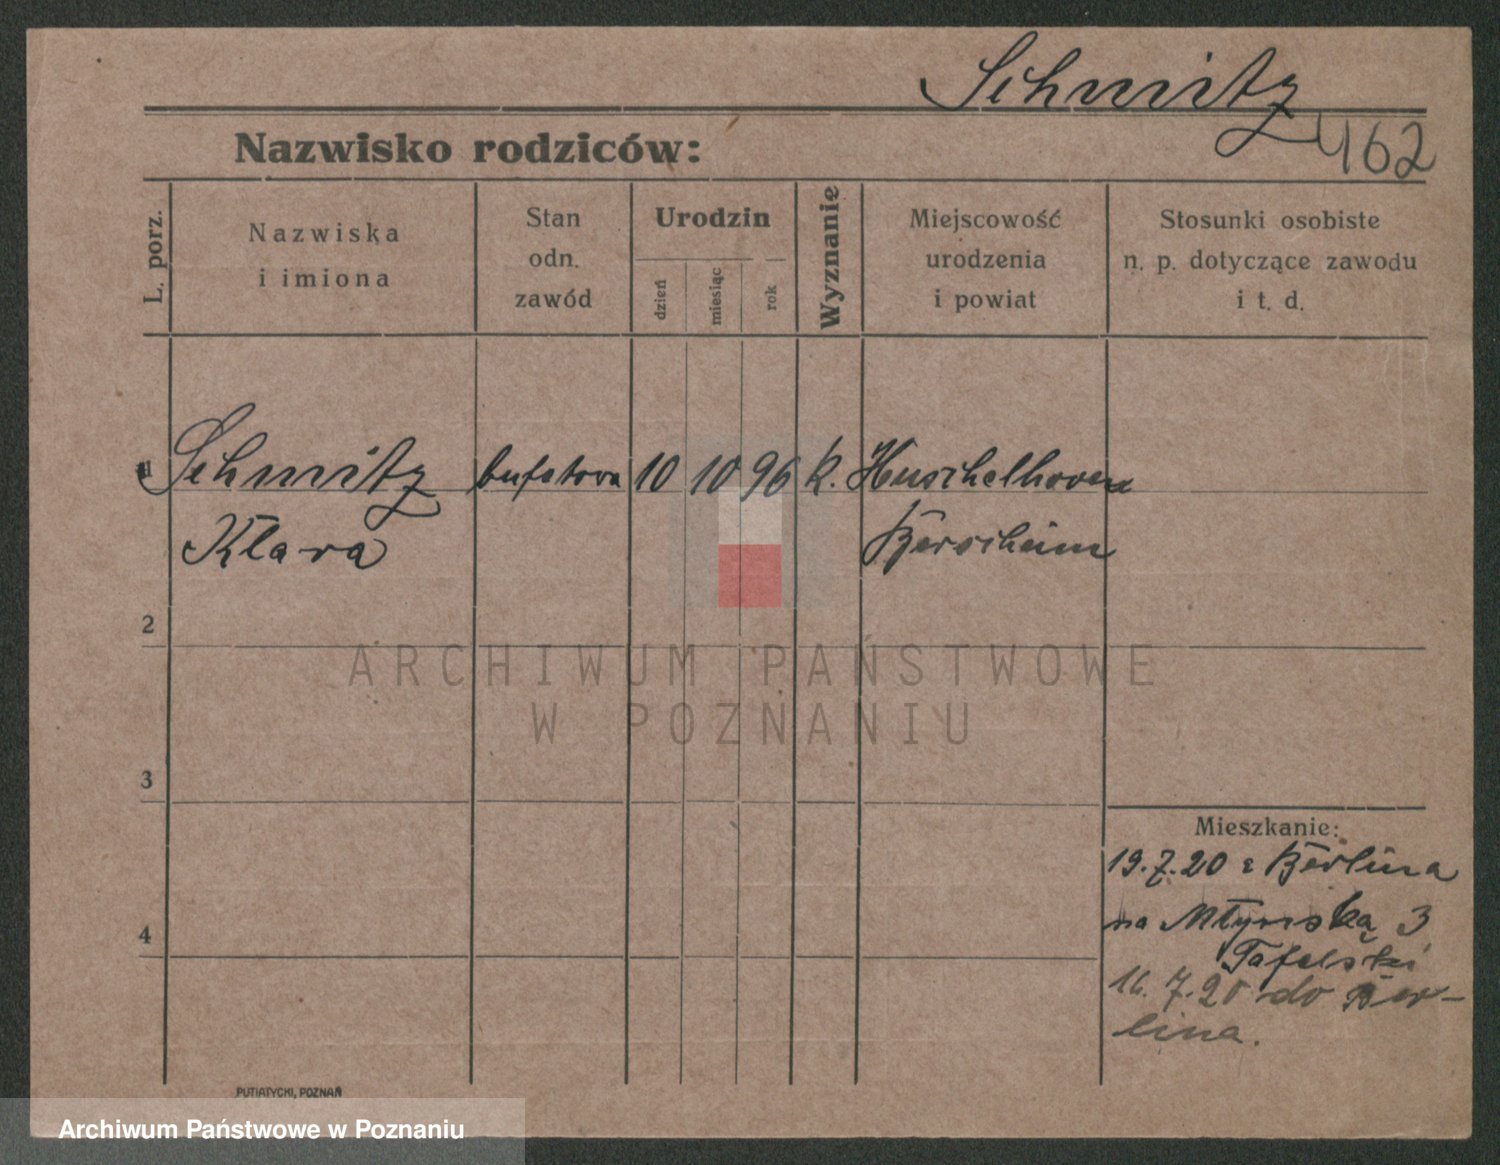 Schmitz
Nazwisko rodziców:
462
L. porz.
Nazwiska
i imiona
Stan
odn.
zawód
Urodzin
dzień
miesiąc
rok
Wyznanie
Miejscowość
urodzenia
i powiat
Stosunki osobiste
n. p. dotyczące zawodu
i t. d.
1 Schmitz bufetowa 10 10 96 k. Huschelhoven
Klara Berscheim
2
ARCHIWUM PAŃSTWOWE
W POZNANIU
3
Mieszkanie:
19.7.20 z Berlina
na Młyńską 3
Tafelski
4
16.7.20 do Ber-
lina.
PUTIATYCKI, POZNAŃ
Archiwum Państwowe w Poznaniu